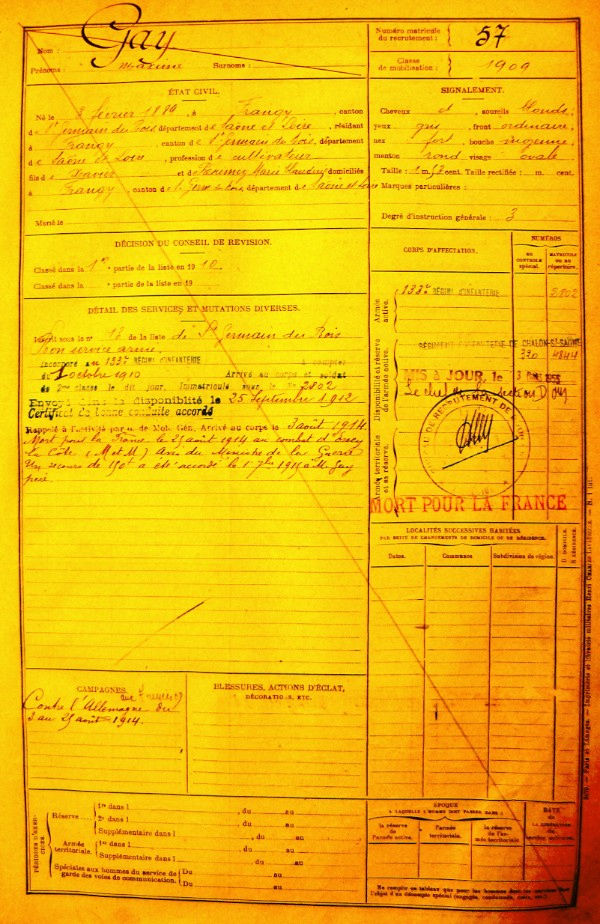 Nom : Gay
Prénoms : Maxime Surnoms :
Numéro matricule du recrutement : 57
Classe de mobilisation : 1909
ÉTAT CIVIL.
Né le 3 février 1889, à Frangy, canton
de St Germain du Bois, département de Saône et Loire, résidant
à Frangy, canton de St Germain du Bois, département
de Saône et Loire, profession de cultivateur
fils de Xavier et de Marie Claudine domiciliés
à Frangy, canton de St Germ. du bois, département de Saône et Loire
Marié le
SIGNALEMENT.
Cheveux et sourcils blonds,
yeux gris, front ordinaire,
nez fort, bouche moyenne,
menton rond, visage ovale
Taille : 1 m. cent. Taille rectifiée : m. cent.
Marques particulières :
Degré d'instruction générale : 3
DÉCISION DU CONSEIL DE RÉVISION.
Classé dans la 1re partie de la liste en 1910.
Classé dans la partie de la liste en 19
DÉTAIL DES SERVICES ET MUTATIONS DIVERSES.
Inscrit sous le n° 18 de la liste de St Germain du Bois
Bon service armé.
Incorporé au 133e RÉGIMENT D'INFANTERIE à compter
du octobre 1910 Arrivé au corps et soldat
de 2me classe le dit jour. Immatriculé sous le n° 2802
Envoyé dans la disponibilité le 25 Septembre 1912
Certificat de bonne conduite accordé
Rappelé à l'activité par u. de Mob. Gén. Arrivé au corps le 3 août 1914.
Mort pour la France le 25 août 1914 au combat d'
la Côte (M et M) Avis du Ministre de la Guerre
Un secours de 150f a été accordé le 1914 à M. Gay
père.
CORPS D'AFFECTATION.
NUMÉROS
AU CONTRÔLE SPÉCIAL.
MATRICULE OU AU RÉPERTOIRE.
Armée active.
133e RÉGIMENT D'INFANTERIE 2802
Disponibilité et réserve de l'armée active.
RÉGIMENT D'INFANTERIE DE CHALON-S-SAÔNE
320 4844
MIS A JOUR, le
Le chef de section D
Armée territoriale et sa réserve.
MORT POUR LA FRANCE
LOCALITÉS SUCCESSIVES HABITÉES
PAR SUITE DE CHANGEMENTS DE DOMICILE OU DE RÉSIDENCE.
Dates. Communes Subdivision de région D. DOMICILE. R. RÉSIDENCE.
CAMPAGNES.
Contre l'Allemagne du
3 au 25 août 1914.
BLESSURES, ACTIONS D'ÉCLAT,
DÉCORATIONS, ETC.
PÉRIODES D'EXERCICES
Réserve
1re dans l , du au
2e dans l , du au
Supplémentaire dans l , du au
Armée territoriale.
1re dans l , du au
Supplémentaire dans l , du au
Spéciales aux hommes du service de garde des voies de communication.
Du au
Du au
ÉPOQUE
A LAQUELLE L'HOMME DOIT PASSER DANS :
la réserve de l'armée active.
l'armée territoriale.
la réserve de l'armée territoriale.
DATE DE LA LIBÉRATION DU SERVICE MILITAIRE.
Ne remplir ce tableau que pour les hommes dont les services font
l'objet d'un décompte spécial (engagés, condamnés, omis, etc.).